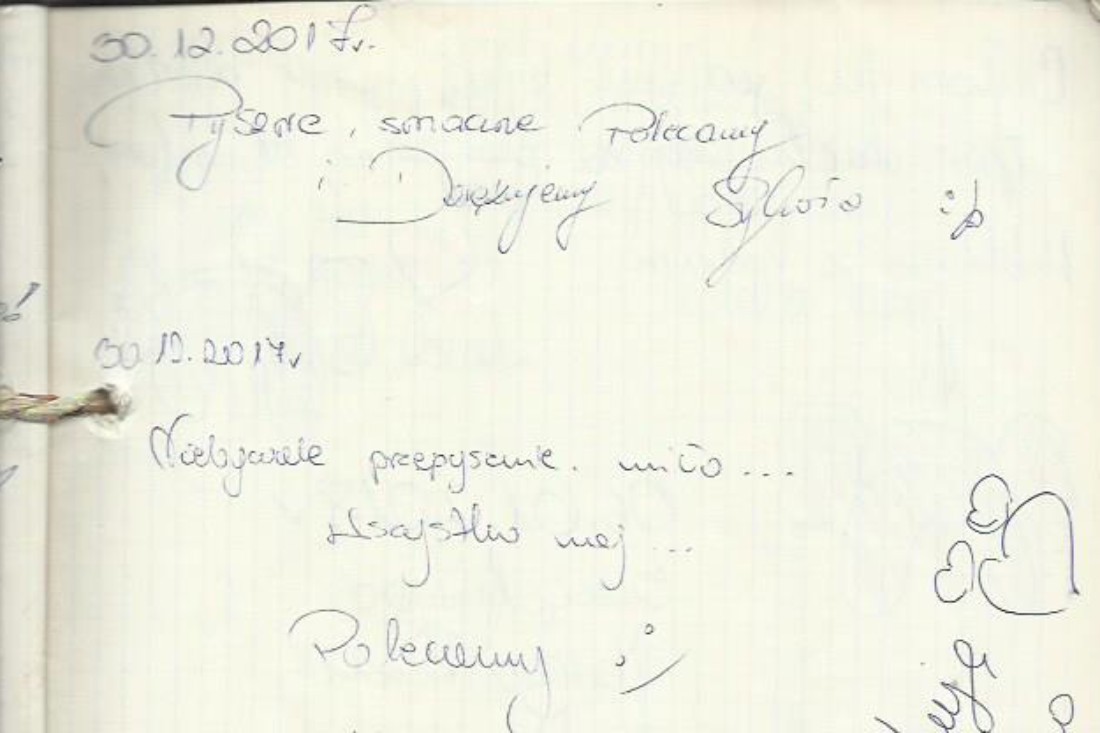 30.12.2017r.
Pyszne, smaczne Polecamy
i Dziękujemy Sylwia :)
30.12.2017r
Niebywale przepysznie. miło...
Wszystko naj...
Polecamy :)